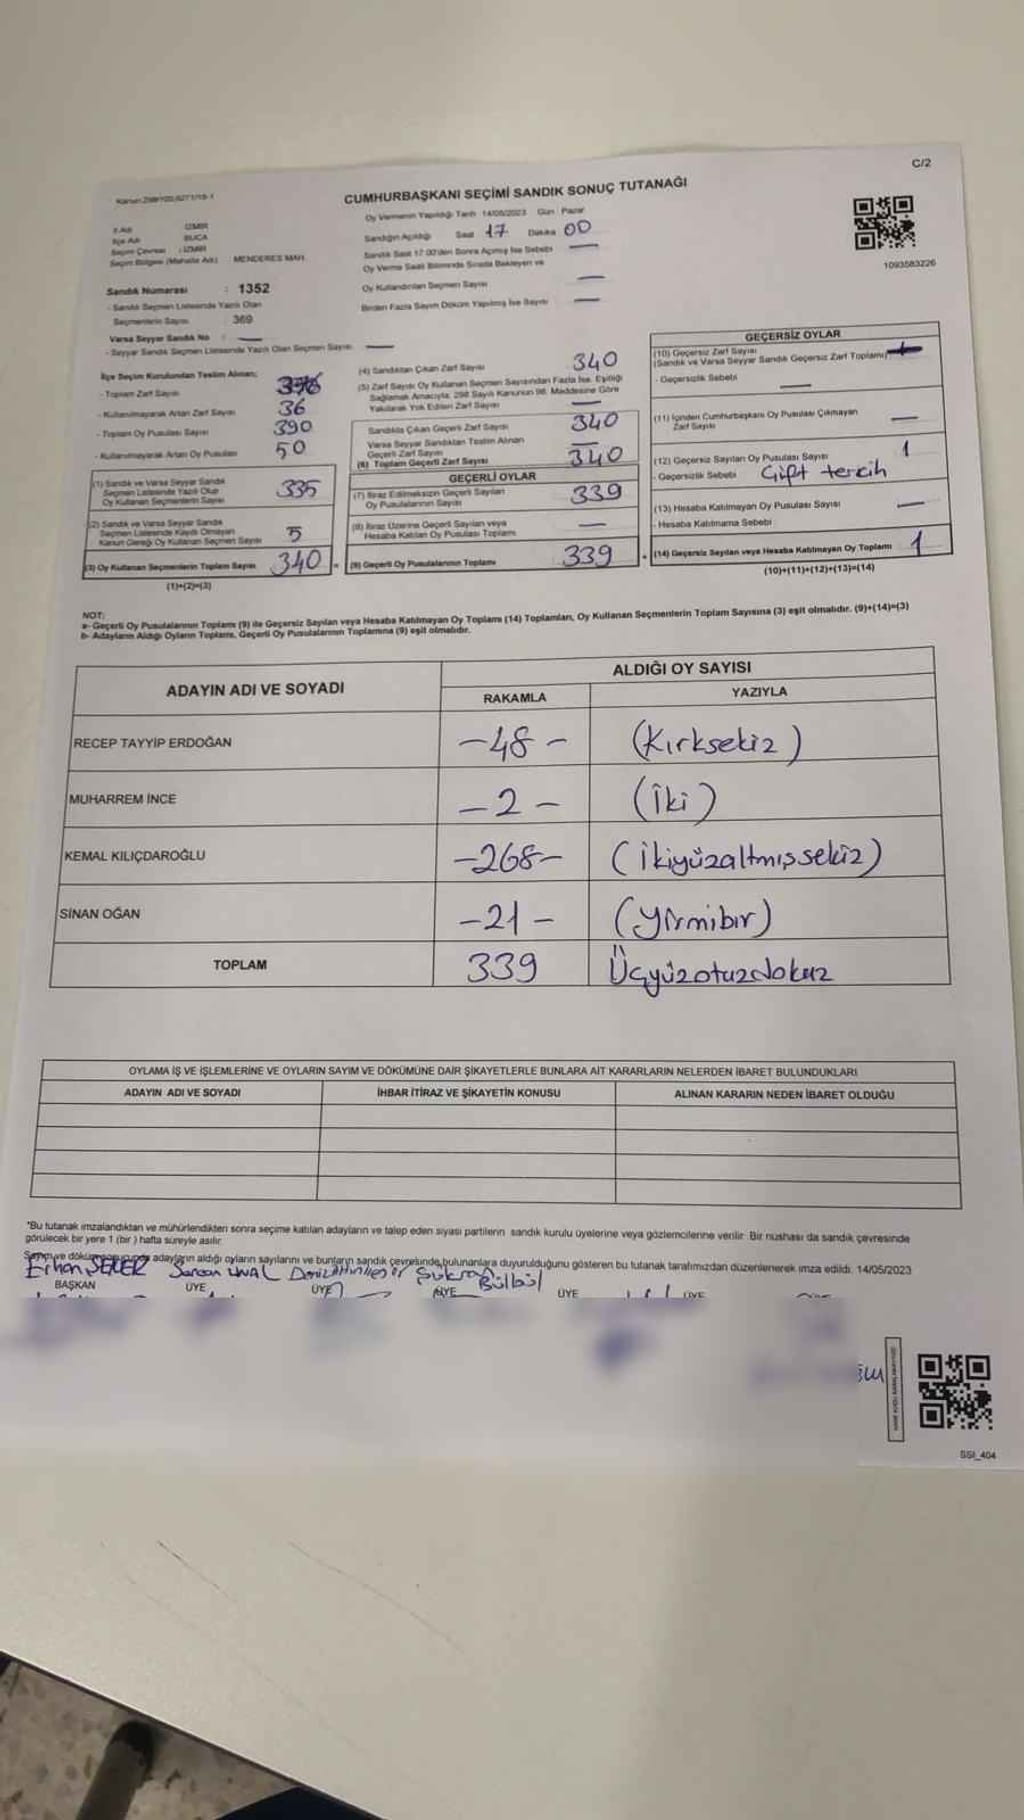 C/2
CUMHURBAŞKANI SEÇİMİ SANDIK SONUÇ TUTANAĞI
Oy Vermenin Yapıldığı Tarih 14/05/2023 Gün : Pazar
Sandığın Açıldığı Saat 17 Dakika 00
Sandık Saat 17:00'den Sonra Açılmış İse Sebebi —
Oy Verme Saati Bitiminde Sırada Bekleyen ve
Oy Kullandırılan Seçmen Sayısı —
Birden Fazla Sayım Döküm Yapılmış İse Sayısı —
1093583226
İl Adı İZMİR
İlçe Adı BUCA
Seçim Çevresi : İZMİR
Seçim Bölgesi (Mahalle Adı) MENDERES MAH.
Sandık Numarası : 1352
- Sandık Seçmen Listesinde Yazılı Olan
Seçmenlerin Sayısı 369
Varsa Seyyar Sandık No : —
- Seyyar Sandık Seçmen Listesinde Yazılı Olan Seçmen Sayısı —
İlçe Seçim Kurulundan Teslim Alınan;
- Toplam Zarf Sayısı
- Kullanılmayarak Artan Zarf Sayısı 36
- Toplam Oy Pusulası Sayısı 390
- Kullanılmayarak Artan Oy Pusulası 50
(1) Sandık ve Varsa Seyyar Sandık
Seçmen Listesinde Yazılı Olup
Oy Kullanan Seçmenlerin Sayısı 335
(2) Sandık ve Varsa Seyyar Sandık
Seçmen Listesinde Kaydı Olmayan
Kanun Gereği Oy Kullanan Seçmen Sayısı 5
(3) Oy Kullanan Seçmenlerin Toplam Sayısı 340 =
(1)+(2)=(3)
(4) Sandıktan Çıkan Zarf Sayısı 340
(5) Zarf Sayısı Oy Kullanan Seçmen Sayısından Fazla İse, Eşitliği
Sağlamak Amacıyla; 298 Sayılı Kanunun 98. Maddesine Göre
Yakılarak Yok Edilen Zarf Sayısı —
Sandıkta Çıkan Geçerli Zarf Sayısı 340
Varsa Seyyar Sandıktan Teslim Alınan
Geçerli Zarf Sayısı —
(6) Toplam Geçerli Zarf Sayısı 340
GEÇERLİ OYLAR
(7) İtiraz Edilmeksizin Geçerli Sayılan
Oy Pusulalarının Sayısı 339
(8) İtiraz Üzerine Geçerli Sayılan veya
Hesaba Katılan Oy Pusulası Toplamı —
(9) Geçerli Oy Pusulalarının Toplamı 339 +
GEÇERSİZ OYLAR
(10) Geçersiz Zarf Sayısı
(Sandık ve Varsa Seyyar Sandık Geçersiz Zarf Toplamı)
- Geçersizlik Sebebi —
(11) İçinden Cumhurbaşkanı Oy Pusulası Çıkmayan
Zarf Sayısı —
(12) Geçersiz Sayılan Oy Pusulası Sayısı 1
- Geçersizlik Sebebi Çift tercih
(13) Hesaba Katılmayan Oy Pusulası Sayısı —
- Hesaba Katılmama Sebebi
(14) Geçersiz Sayılan veya Hesaba Katılmayan Oy Toplamı 1
(10)+(11)+(12)+(13)=(14)
NOT:
a- Geçerli Oy Pusulalarının Toplamı (9) ile Geçersiz Sayılan veya Hesaba Katılmayan Oy Toplamı (14) Toplamları, Oy Kullanan Seçmenlerin Toplam Sayısına (3) eşit olmalıdır. (9)+(14)=(3)
b- Adayların Aldığı Oyların Toplamı, Geçerli Oy Pusulalarının Toplamına (9) eşit olmalıdır.
ADAYIN ADI VE SOYADI ALDIĞI OY SAYISI
RAKAMLA YAZIYLA
RECEP TAYYİP ERDOĞAN -48- (Kırksekiz)
MUHARREM İNCE -2- (İki)
KEMAL KILIÇDAROĞLU -268- (İkiyüzaltmışsekiz)
SİNAN OĞAN -21- (Yirmibir)
TOPLAM 339 Üçyüzotuzdokuz
OYLAMA İŞ VE İŞLEMLERİNE VE OYLARIN SAYIM VE DÖKÜMÜNE DAİR ŞİKAYETLERLE BUNLARA AİT KARARLARIN NELERDEN İBARET BULUNDUKLARI
ADAYIN ADI VE SOYADI İHBAR İTİRAZ VE ŞİKAYETİN KONUSU ALINAN KARARIN NEDEN İBARET OLDUĞU
*Bu tutanak imzalandıktan ve mühürlendikten sonra seçime katılan adayların ve talep eden siyasi partilerin sandık kurulu üyelerine veya gözlemcilerine verilir. Bir nushası da sandık çevresinde
görülecek bir yere 1 (bir) hafta süreyle asılır.
Sayım ve döküm sonucunda adayların aldığı oyların sayılarını ve bunların sandık çevresinde bulunanlara duyurulduğunu gösteren bu tutanak tarafımızdan düzenlenerek imza edildi. 14/05/2023
Erhan Şükrü Bülbül
BAŞKAN ÜYE ÜYE ÜYE ÜYE ÜYE
SSI_404